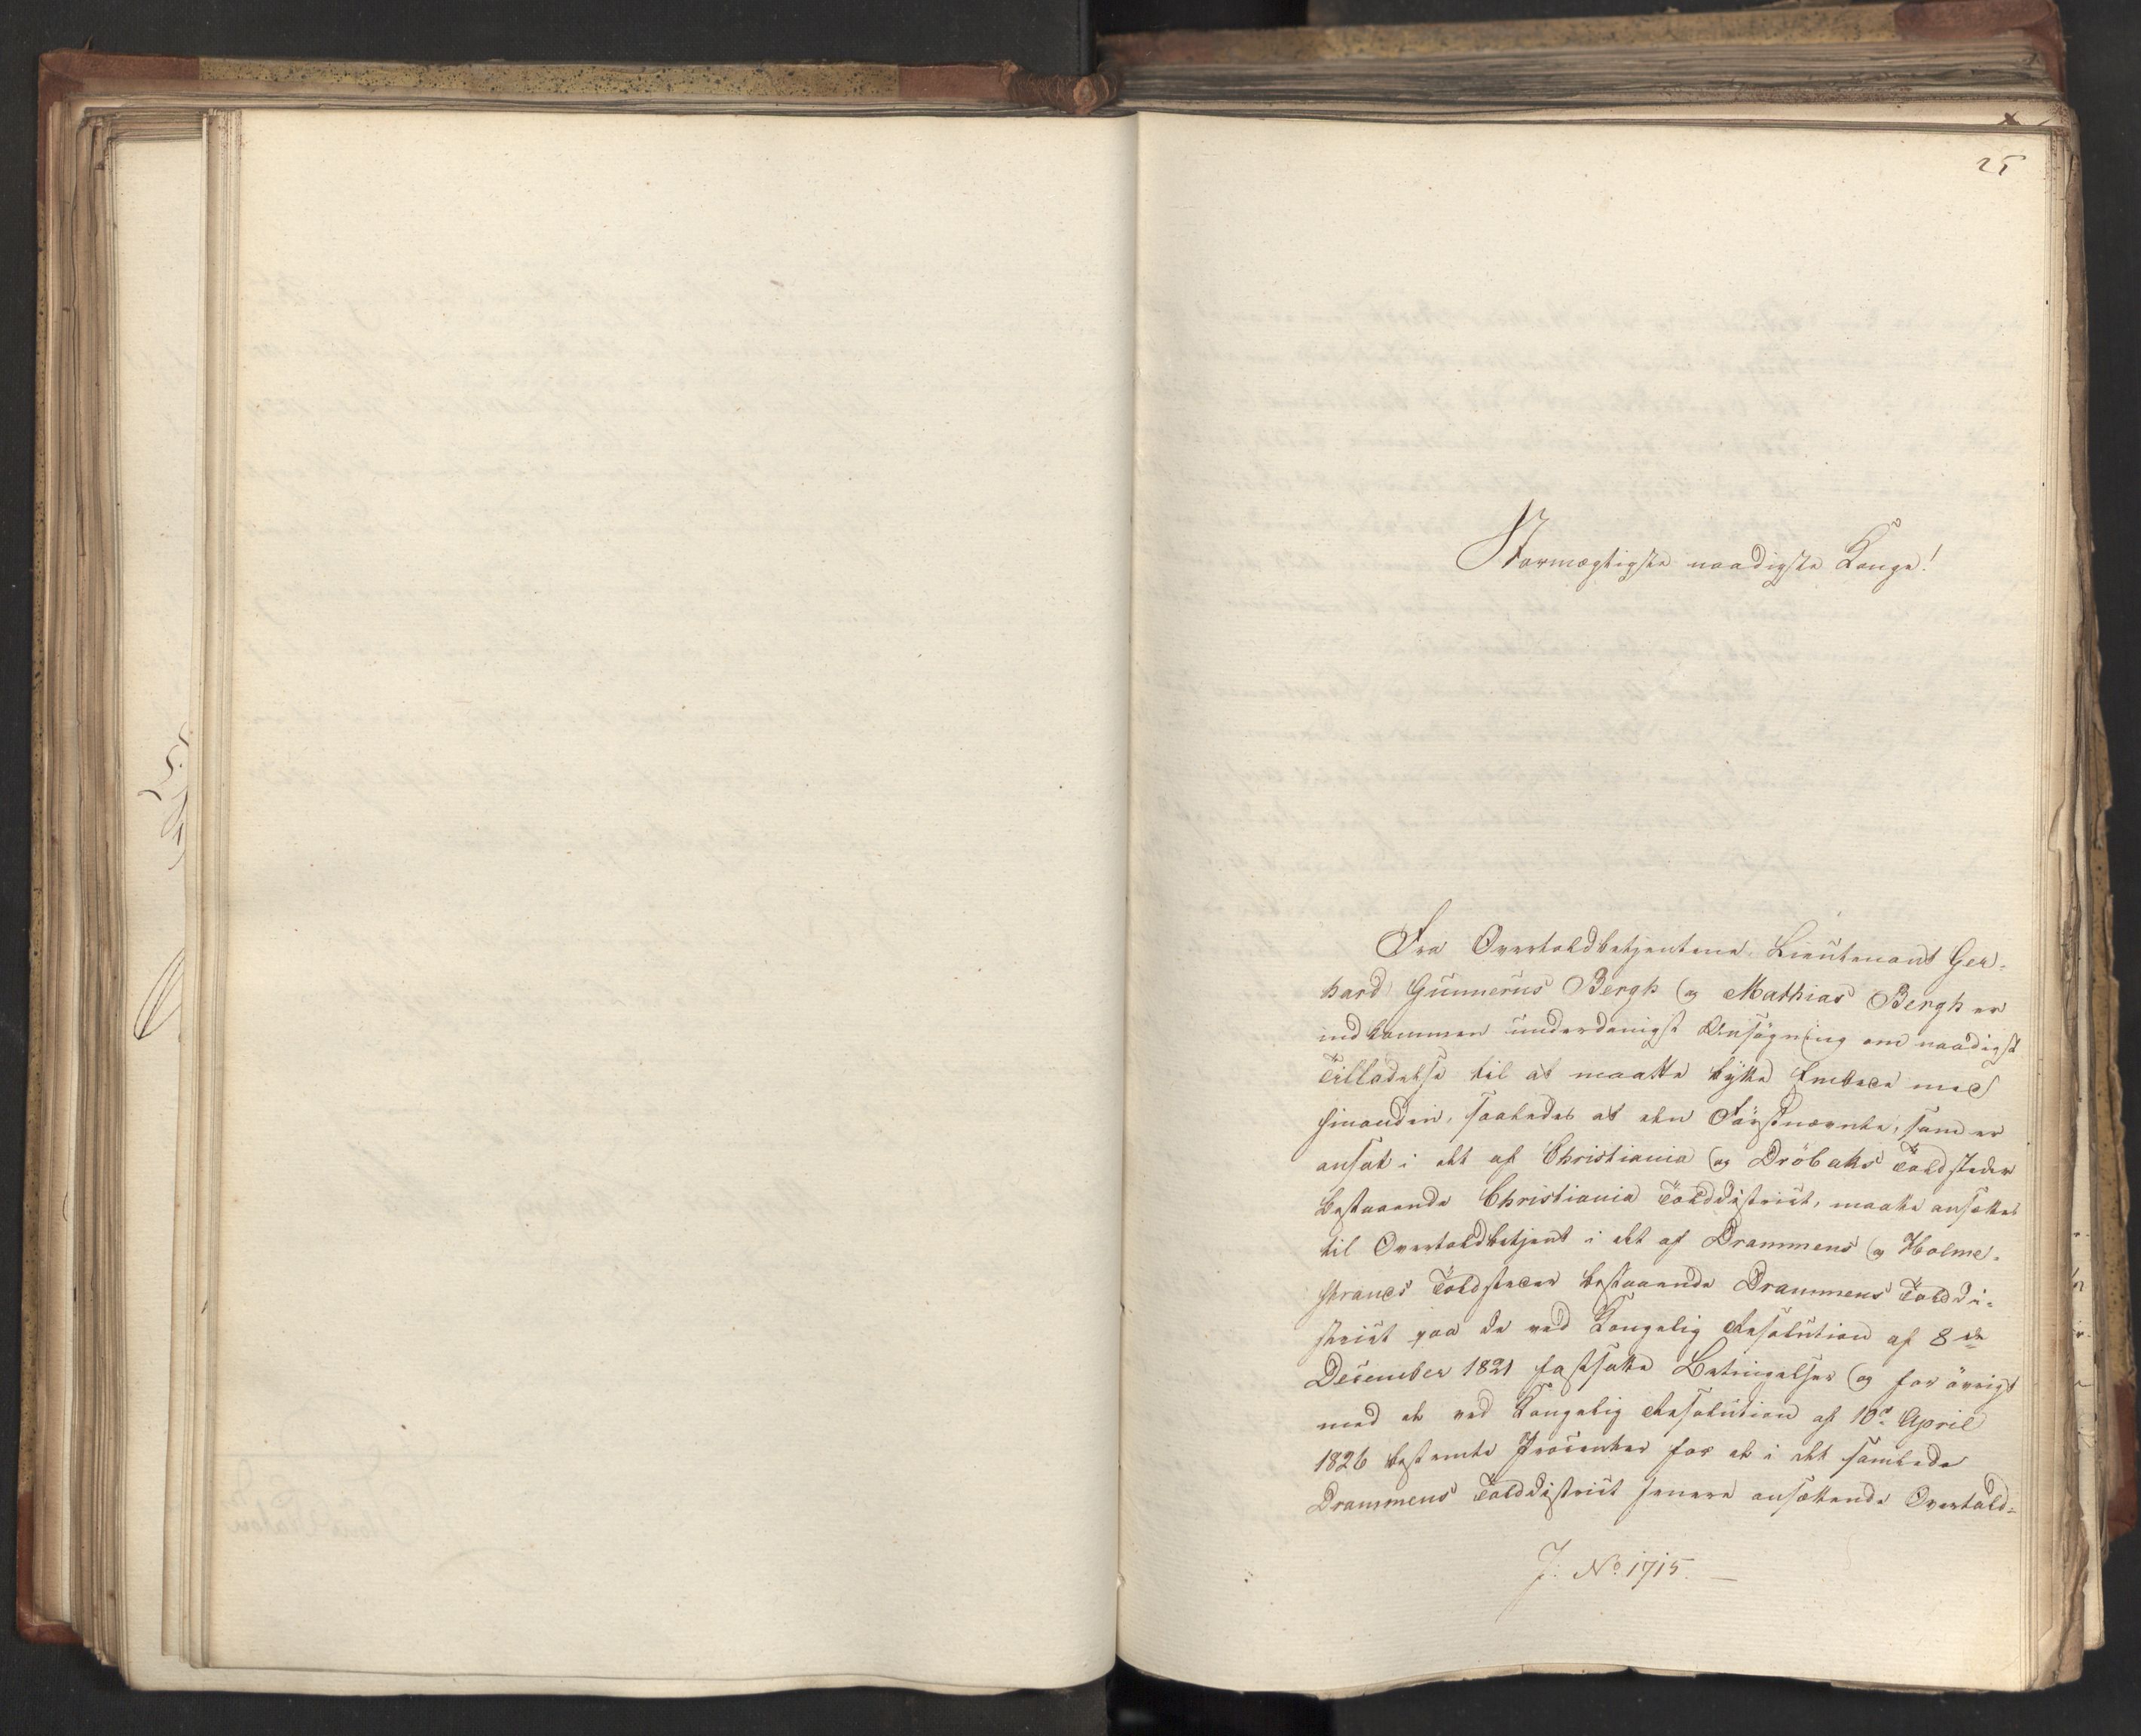 25
Stormægtigste naadigste Konge!
Fra Overtoldbetjentene, Lieutenant Ger-
hard Gunnerus Bergh og Mathias Bergh er
indkommen underdanigst Ansøgning om naadigst
Tilladelse til at maatte bytte Embede med
hinanden, saaledes at den Førstnævnte, som er
ansat i det af Christiania og Dröbaks Toldsteder
bestaaende Christiania Tolddistrict, maatte ansættes
til Overtoldbetjent i det af Drammens og Holme-
strands Toldsteder bestaaende Drammens Tolddi-
strict paa de ved Kongelig Resolution af 8de
December 1821 fastsatte Betingelser og for övrigt
med de ved Kongelig Resolution af 10de April
1826 bestemte Procenter for de i det samlede
Drammens Tolddistrict senere ansættende Overtold-
J. No 1715. —